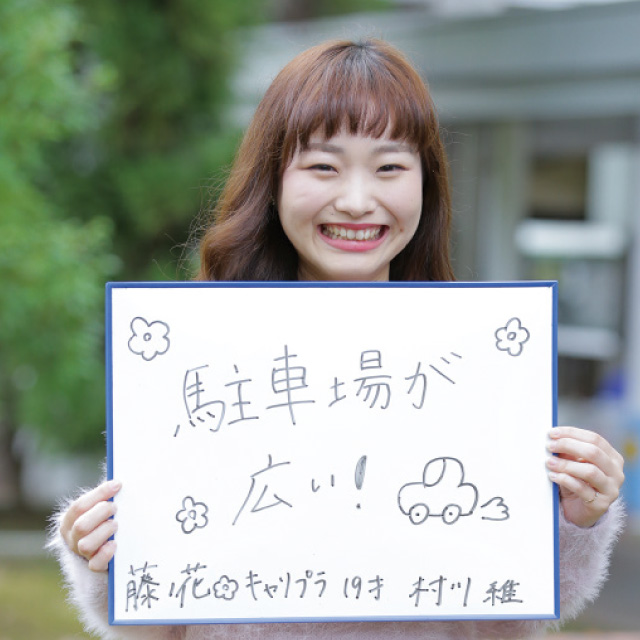 駐車場が
広い!
藤ノ花 キャリプラ 19才 村川 稚